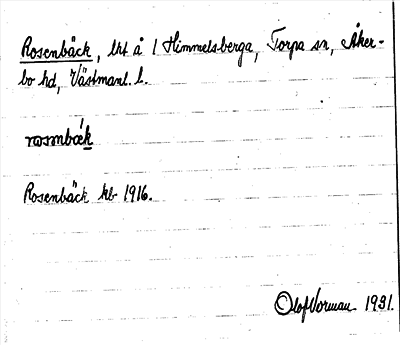 Rosenbäck, lht å 1 Himmelsberga, Torpa sn, Åker-
bo hd, Västmanl. l.
rosmbæk
Rosenbäck kb 1916.
Olof Norman 1931.